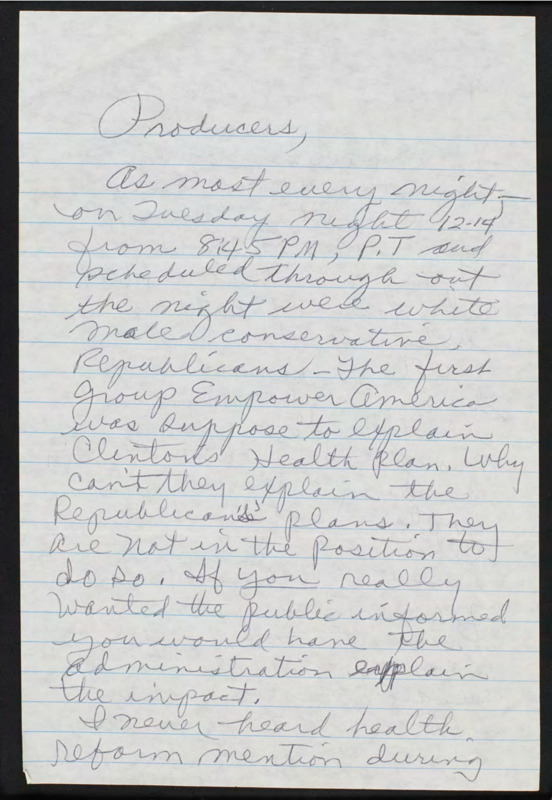 Producers,
As most every night—
on Tuesday night 12-14
from 8:45 PM, P.T and
scheduled through out
the night were white
male conservative,
Republicans - The first
group Empower America
was suppose to explain
Clinton's Health Plan. Why
can't they explain the
Republican's plans. They
are not in the position to
do so. If you really
wanted the public informed
you would have the
administration explain
the impact.
I never heard health
reform mention during